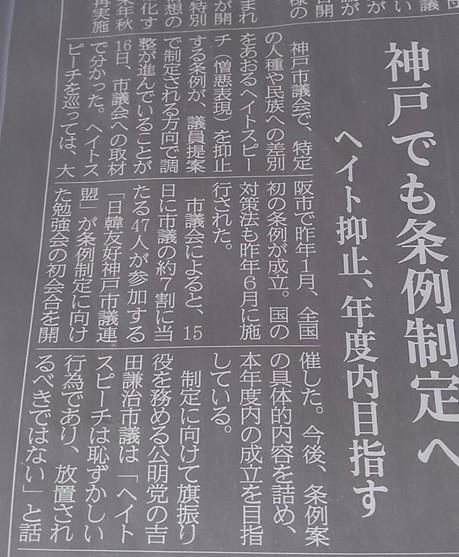 様の
まれ
が開
特別
想の
化す
年秋
再実施
神戸でも条例制定へ
ヘイト抑止、年度内目指す
神戸市議会で、特定
の人種や民族への差別
をあおるヘイトスピー
チ(憎悪表現)を抑止
する条例が、議員提案
で制定される方向で調
整が進んでいることが
16日、市議会への取材
で分かった。ヘイトス
ピーチを巡っては、大
阪市で昨年1月、全国
初の条例が成立。国の
対策法も昨年6月に施
行された。
市議会によると、15
日に市議の約7割に当
たる47人が参加する
「日韓友好神戸市議連
盟」が条例制定に向け
た勉強会の初会合を開
催した。今後、条例案
の具体的内容を詰め、
本年度内の成立を目指
している。
制定に向けて旗振り
役を務める公明党の吉
田謙治市議は「ヘイト
スピーチは恥ずかしい
行為であり、放置され
るべきではない」と話